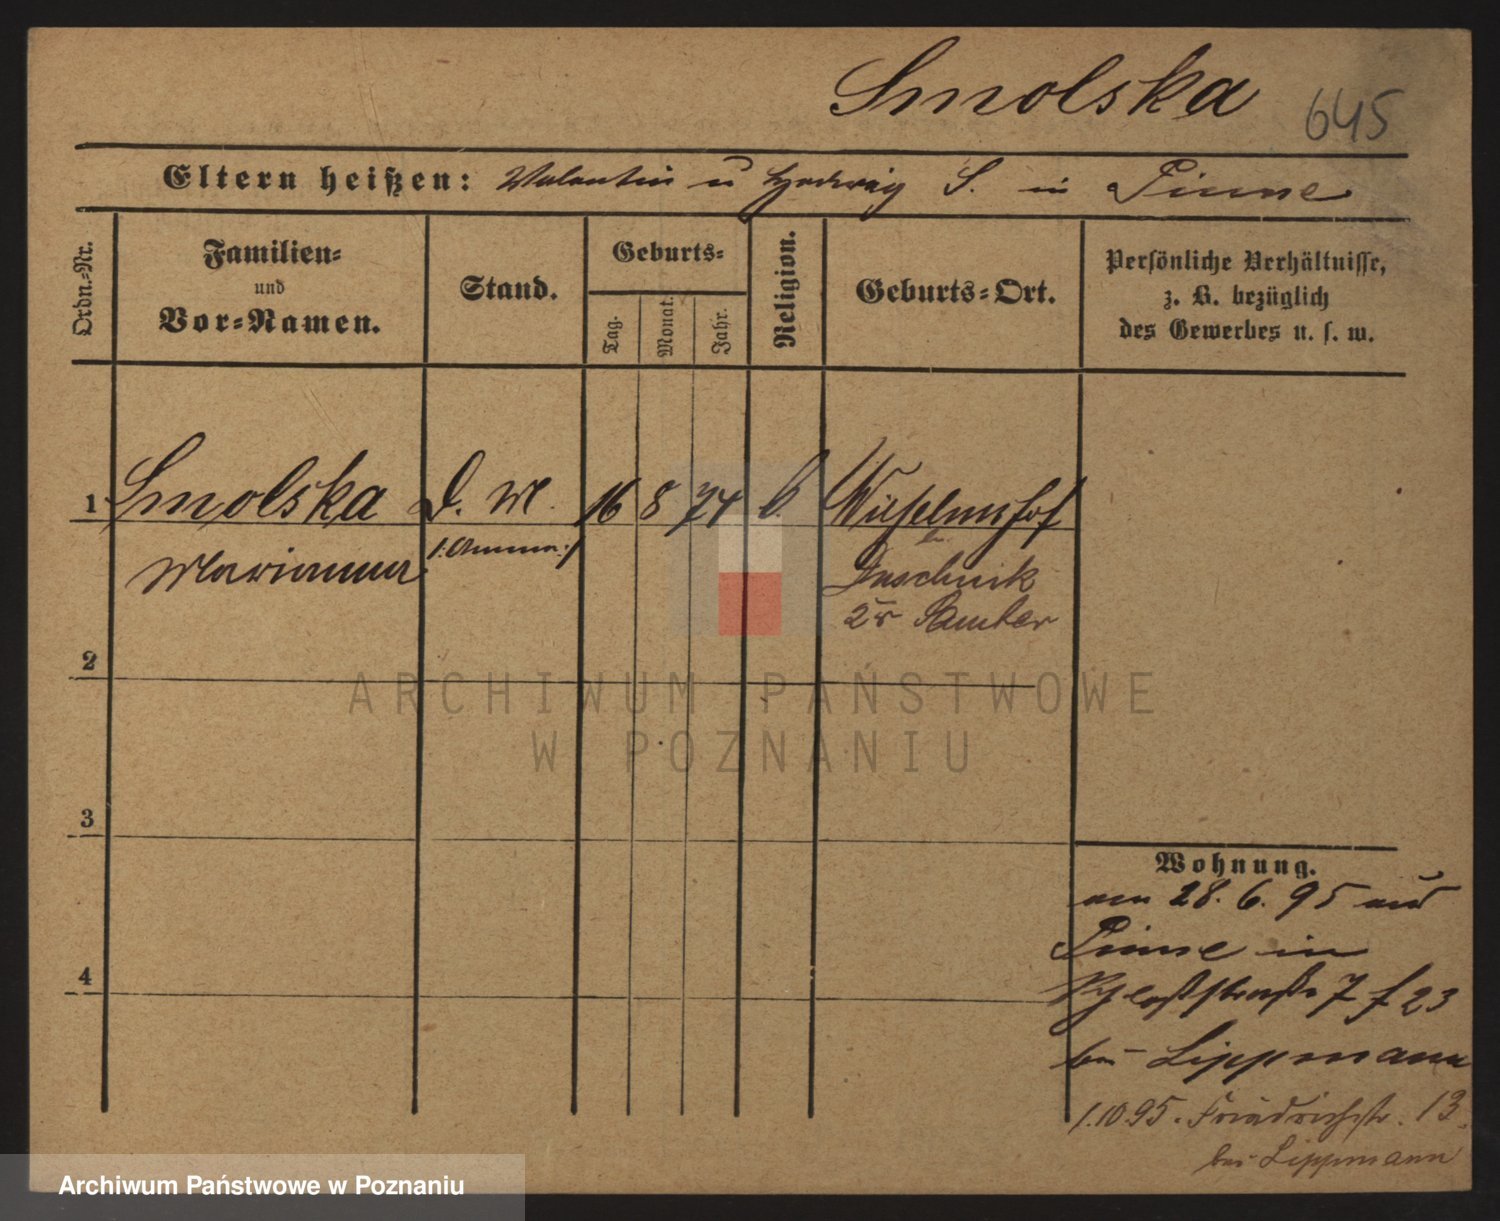 Smolska 645
Eltern heißen: Valentin u Hedwig S. in Pinne
Ordn.-Nr.
Familien-
und
Vor-Namen.
Stand.
Geburts-
Tag.
Monat.
Jahr.
Religion.
Geburts-Ort.
Persönliche Verhältnisse,
z. B. bezüglich
des Gewerbes u. s. w.
1 Smolska D. M. 16 8 74 k. Wilhelmshof
Marianna /:Amme:/ b.
Duschnik
Kr Samter
2
3
4
Wohnung.
am 28. 6. 95 aus
Pinne in
Schloßstraße 7 f 23
bei Lippmann
1.10.95. Friedrichstr. 13.
bei Lippmann
ARCHIWUM PAŃSTWOWE
W POZNANIU
Archiwum Państwowe w Poznaniu